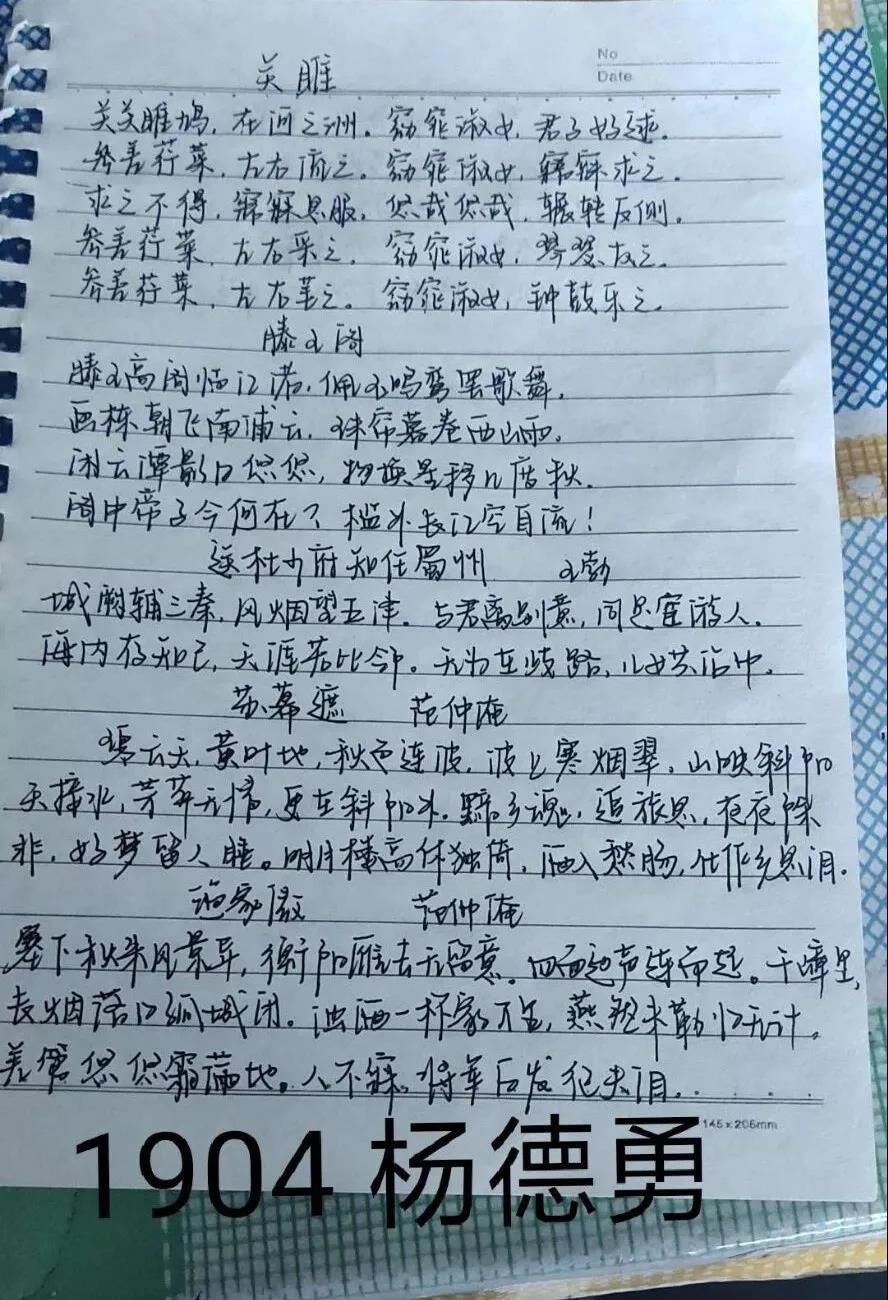 No
Date
关雎
关关雎鸠,在河之洲。窈窕淑女,君子好逑。
参差荇菜,左右流之。窈窕淑女,寤寐求之。
求之不得,寤寐思服,悠哉悠哉,辗转反侧。
参差荇菜,左右采之。窈窕淑女,琴瑟友之。
参差荇菜,左右芼之。窈窕淑女,钟鼓乐之。
滕王阁
滕王高阁临江渚,佩玉鸣鸾罢歌舞。
画栋朝飞南浦云,珠帘暮卷西山雨。
闲云潭影日悠悠,物换星移几度秋。
阁中帝子今何在?槛外长江空自流!
送杜少府知任蜀州 王勃
城阙辅三秦,风烟望五津。与君离别意,同是宦游人。
海内存知己,天涯若比邻。无为在歧路,儿女共沾巾。
苏幕遮 范仲淹
碧云天,黄叶地,秋色连波,波上寒烟翠。山映斜阳
天接水,芳草无情,更在斜阳外。黯乡魂,追旅思,夜夜除
非,好梦留人睡。明月楼高休独倚,酒入愁肠,化作乡思泪。
渔家傲 范仲淹
塞下秋来风景异,衡阳雁去无留意。四面边声连角起。千嶂里,
长烟落日孤城闭。浊酒一杯家万里,燕然未勒归无计。
羌管悠悠霜满地。人不寐,将军白发征夫泪。
145x206mm
1904 杨德勇